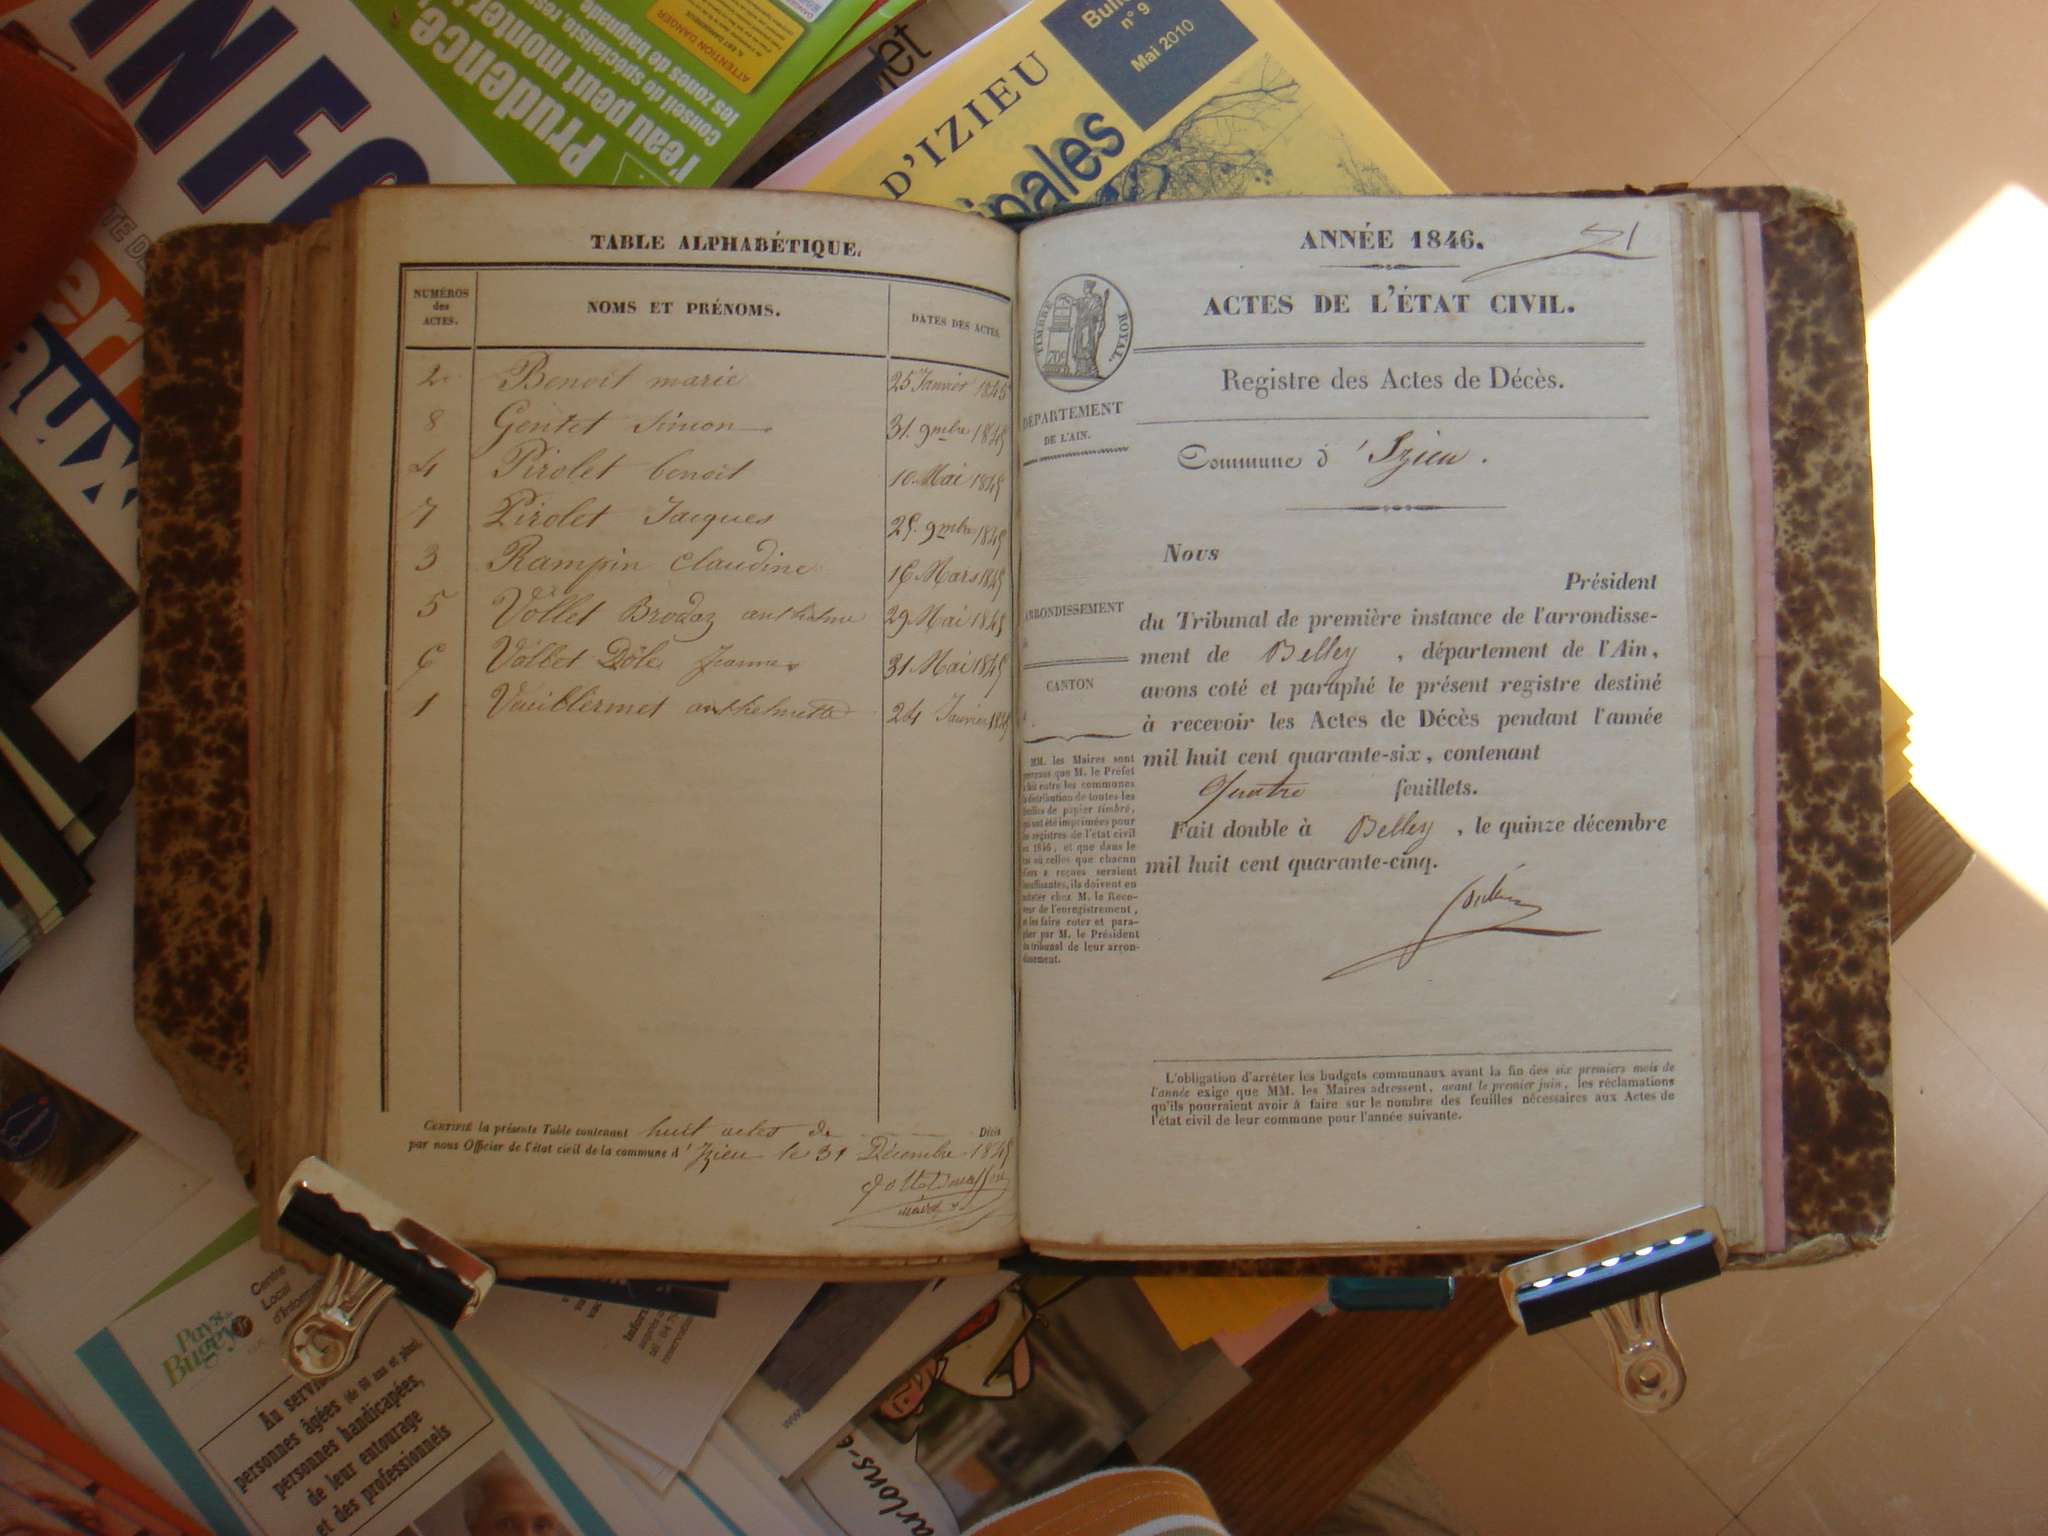 INFO
Prudence,
l'eau peut monter
conseil de spécialiste, res
les zones de baignade
ATTENTION DANGER
D'IZIEU
ipales
Bull
n° 9
Mai 2010
TABLE ALPHABÉTIQUE.
NUMÉROS des ACTES.
NOMS ET PRÉNOMS.
DATES DES ACTES.
2 Benoit marie 25 Janvier 1845
8 Gentet Simon 31. 9mbre 1845
4 Pirolet benoit 10 Mai 1845
7 Pirolet Jacques 25. 9mbre 1845
3 Rampin Claudine 16 Mars 1845
5 Vollet Brodaz anthelme 29 Mai 1845
6 Vollet Dôle Jeanne 31 Mai 1845
1 Vuillermet anthelmette 24 Janvier 1845
CERTIFIÉ la présente Table contenant huit actes de Décès
par nous Officier de l'état civil de la commune d'Izieu le 31 Décembre 1845
ANNÉE 1846.
ACTES DE L'ÉTAT CIVIL.
TIMBRE ROYAL.
Registre des Actes de Décès.
DÉPARTEMENT
DE L'AIN.
Commune d'Izieu.
Nous
Président
ARRONDISSEMENT
du Tribunal de première instance de l'arrondisse-
ment de Belley, département de l'Ain,
CANTON
avons coté et paraphé le présent registre destiné
à recevoir les Actes de Décès pendant l'année
mil huit cent quarante-six, contenant
Quatre feuillets.
Fait double à Belley, le quinze décembre
mil huit cent quarante-cinq.
MM. les Maires sont
prévenus que M. le Préfet
a fait entre les communes
la distribution de toutes les
feuilles de papier timbré,
qui ont été imprimées pour
les registres de l'état civil
en 1846, et que dans le
cas où celles que chacun
d'eux a reçues seraient
insuffisantes, ils doivent en
acheter chez M. le Rece-
veur de l'enregistrement,
et les faire coter et para-
pher par M. le Président
du tribunal de leur arron-
dissement.
L'obligation d'arrêter les budgets communaux avant la fin des six premiers mois de
l'année exige que MM. les Maires adressent, avant le premier juin, les réclamations
qu'ils pourraient avoir à faire sur le nombre des feuilles nécessaires aux Actes de
l'état civil de leur commune pour l'année suivante.
Pays du
Bugey
Centre
Local
d'Informa
Au servi
personnes âgées (de 60 ans et plus),
personnes handicapées,
de leur entourage
et des professionnels
arlons-